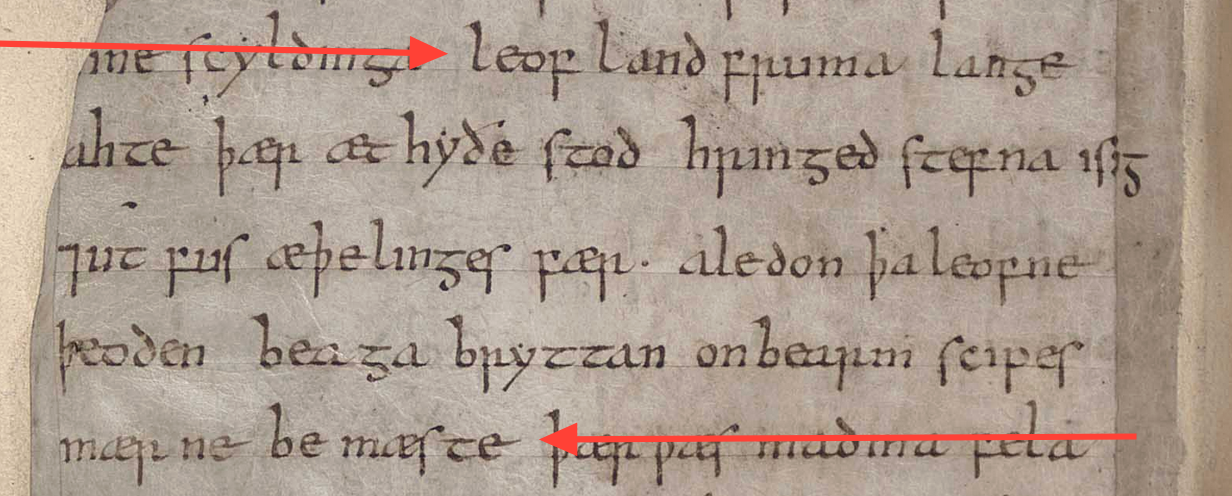 ine scyldinga leof land fruma lange
ahte þær æt hyðe stod hringed stefna isig
⁊ut fus æþelinges fær. aledon þa leofne
þeoden beaga bryttan on bearm scipes
mær ne be mæste þær ƿæs madma fela